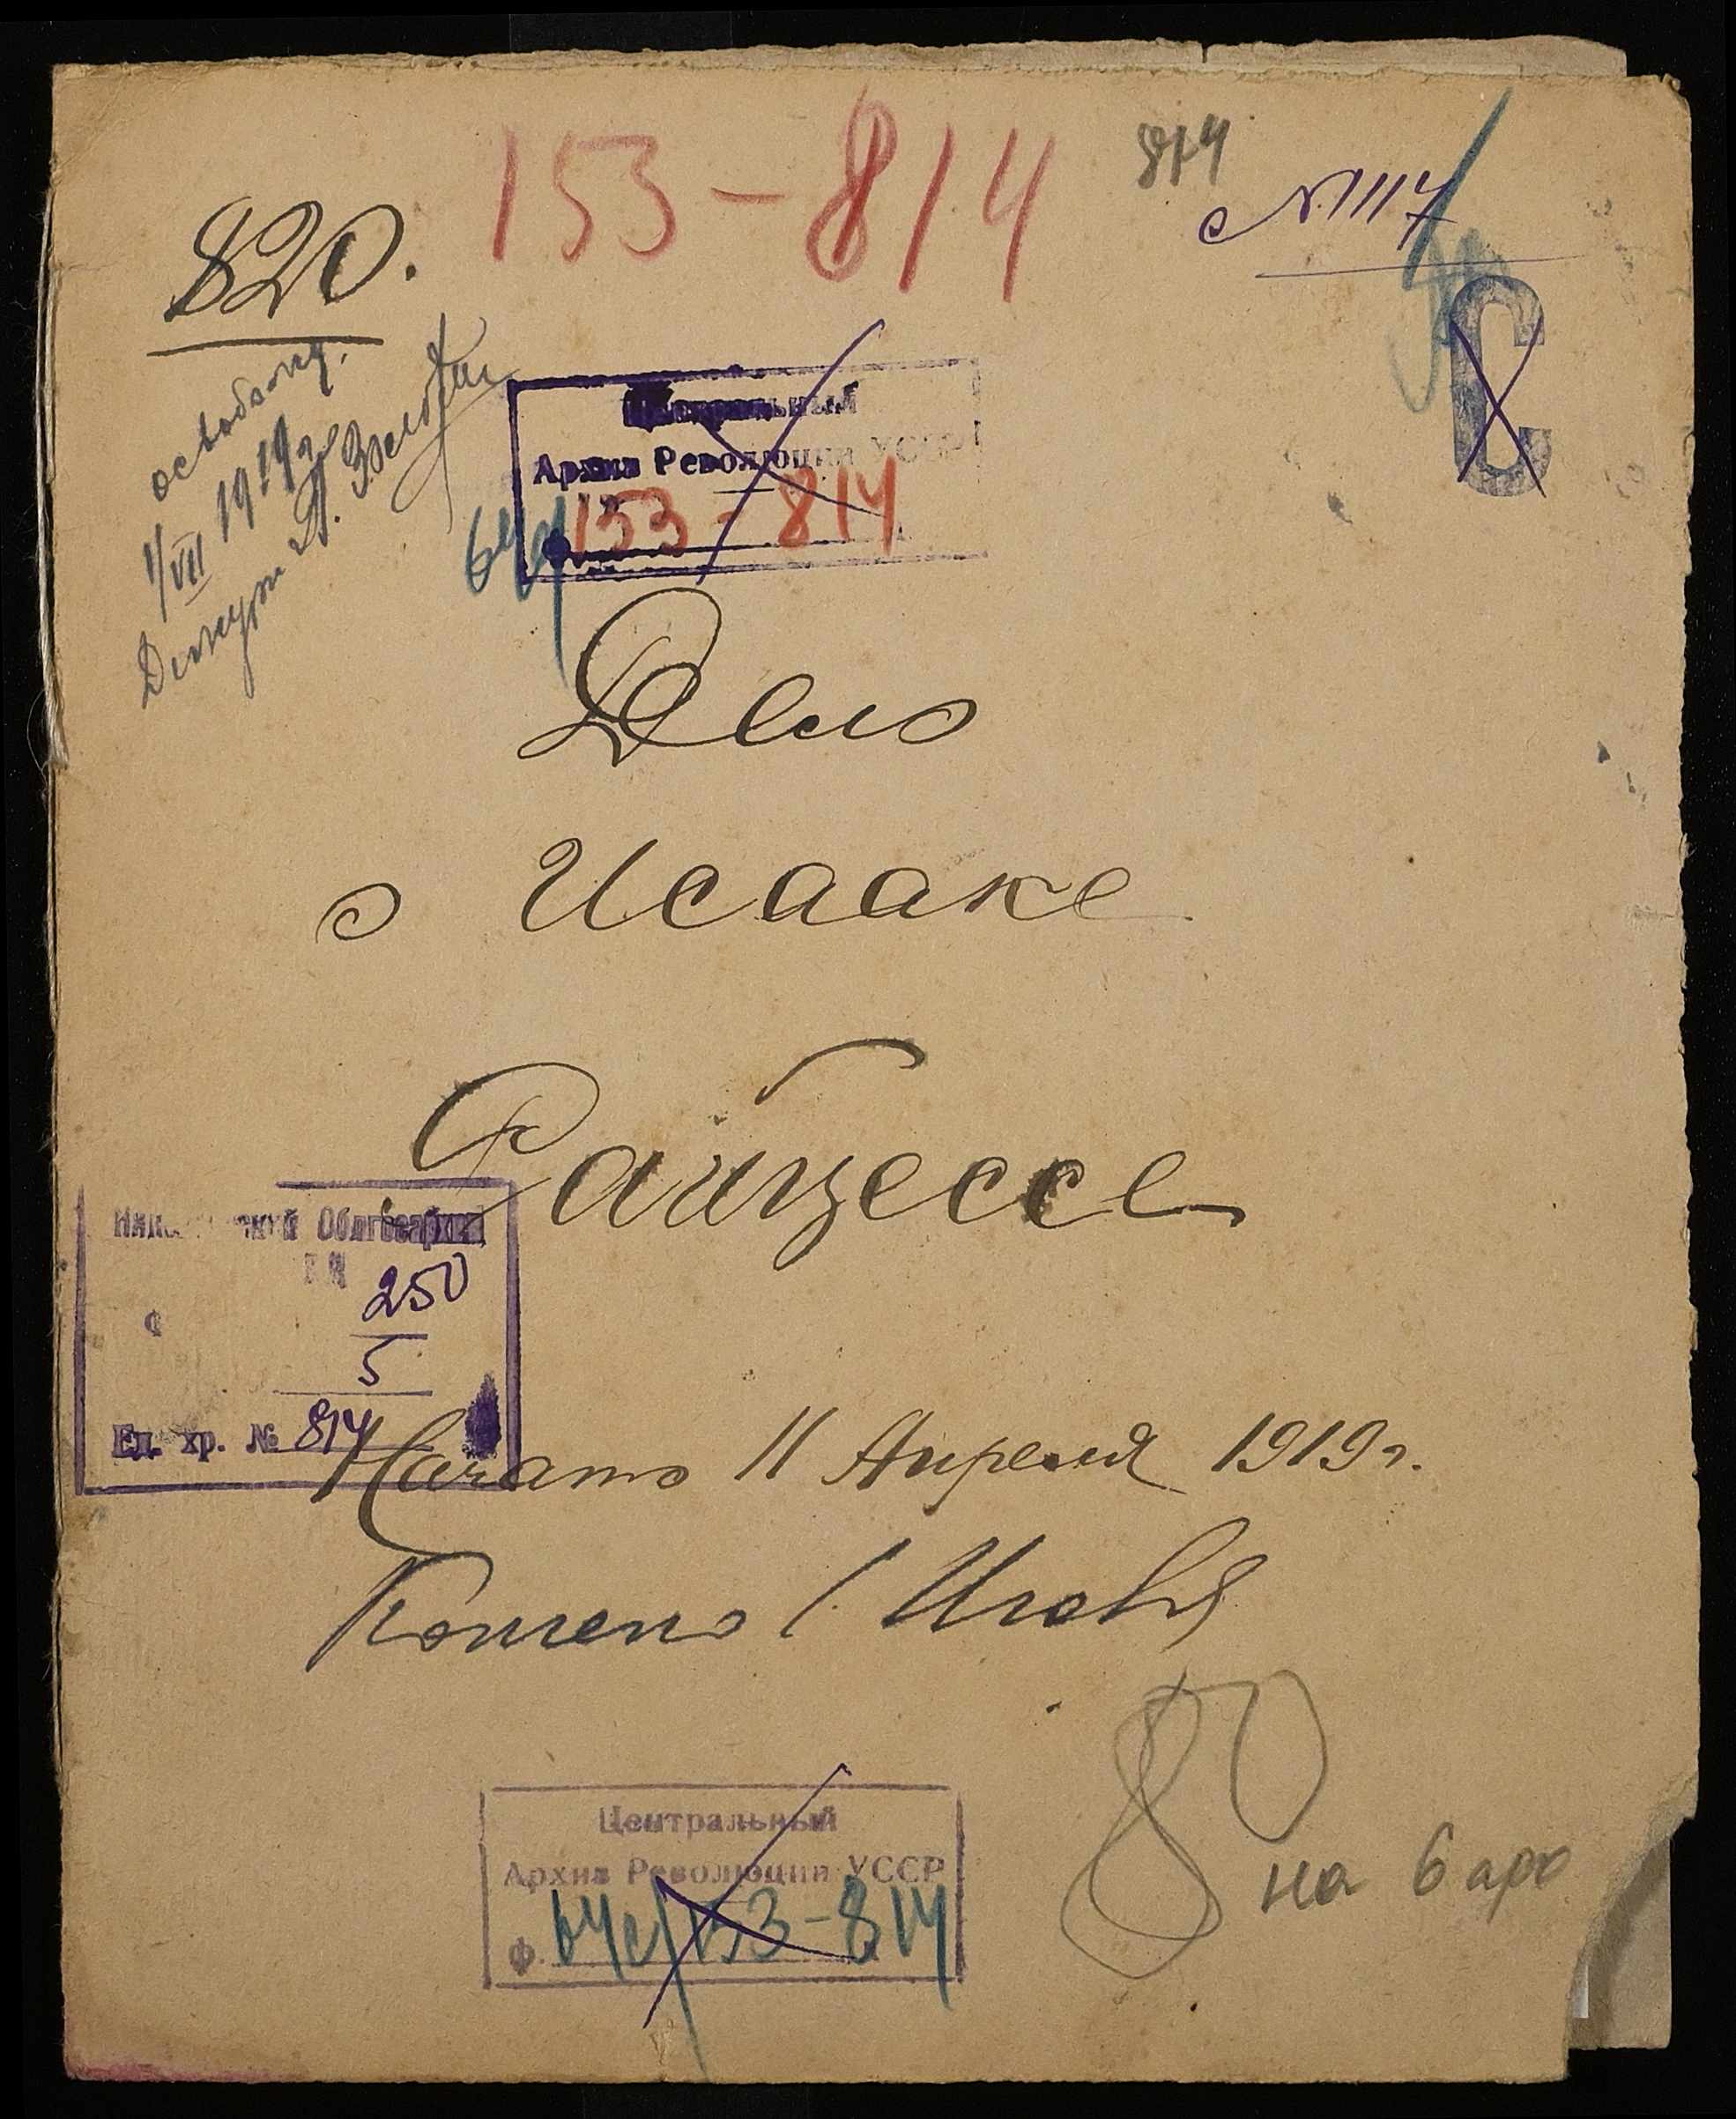 153-814
814
№1117
820.
освобожд.
1/VII 1919г
Центральный
Архив Революции УССР
153-814
64с/
С
Дело
о Исааке
Райцессе
Облгосархив
250
Ф
5
Ед. хр. № 814
Начато 11 Апреля 1919г.
Кончено 1 Июля
80
на 6
Центральный
Архив Революции УССР
Ф. 64с/153-814